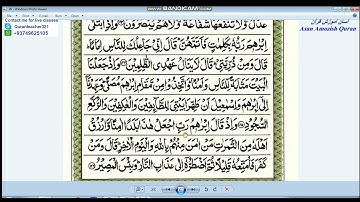 BANDICAM
Contact me for live classes
Quranteacher321
+93749625105
آسان آموزش قرآن
Asan Amozish Quran
عَدْلٌ وَلَا تَنفَعُهَا شَفَاعَةٌ وَلَا هُمْ يُنصَرُونَ وَإِذِ ابْتَلَىٰ
إِبْرَٰهِمَ رَبُّهُ بِكَلِمَٰتٍ فَأَتَمَّهُنَّ قَالَ إِنِّي جَاعِلُكَ لِلنَّاسِ إِمَامًا
قَالَ وَمِن ذُرِّيَّتِي قَالَ لَا يَنَالُ عَهْدِي الظَّٰلِمِينَ وَإِذْ جَعَلْنَا
الْبَيْتَ مَثَابَةً لِّلنَّاسِ وَأَمْنًا وَاتَّخِذُوا مِن مَّقَامِ إِبْرَٰهِمَ مُصَلًّى وَعَهِدْنَا
إِلَىٰ إِبْرَٰهِمَ وَإِسْمَٰعِيلَ أَن طَهِّرَا بَيْتِيَ لِلطَّائِفِينَ وَالْعَٰكِفِينَ وَالرُّكَّعِ
السُّجُودِ وَإِذْ قَالَ إِبْرَٰهِمُ رَبِّ اجْعَلْ هَٰذَا بَلَدًا ءَامِنًا وَارْزُقْ
أَهْلَهُ مِنَ الثَّمَرَٰتِ مَنْ ءَامَنَ مِنْهُم بِاللَّهِ وَالْيَوْمِ الْءَاخِرِ قَالَ وَمَن
كَفَرَ فَأُمَتِّعُهُ قَلِيلًا ثُمَّ أَضْطَرُّهُ إِلَىٰ عَذَابِ النَّارِ وَبِئْسَ الْمَصِيرُ